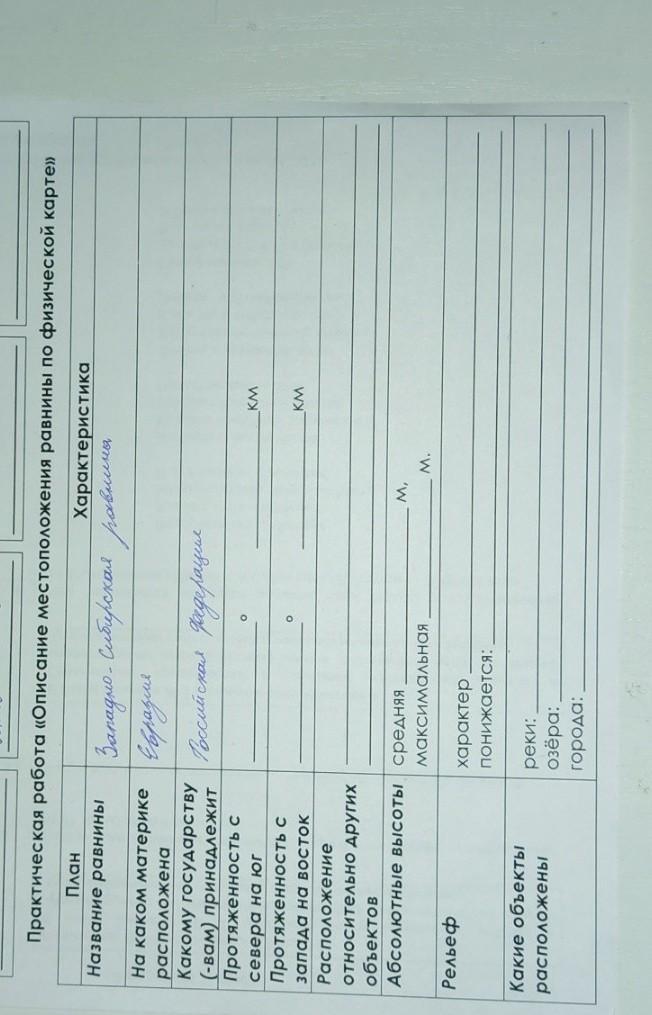 Практическая работа «Описание местоположения равнины по физической карте»
План
Характеристика
Название равнины
Западно-Сибирская равнина
На каком материке
расположена
Евразия
Какому государству
(-вам) принадлежит
Российская Федерация
Протяженность с
севера на юг
° км
Протяженность с
запада на восток
° км
Расположение
относительно других
объектов
Абсолютные высоты
средняя м,
максимальная м.
Рельеф
характер
понижается:
Какие объекты
расположены
реки:
озёра:
города: